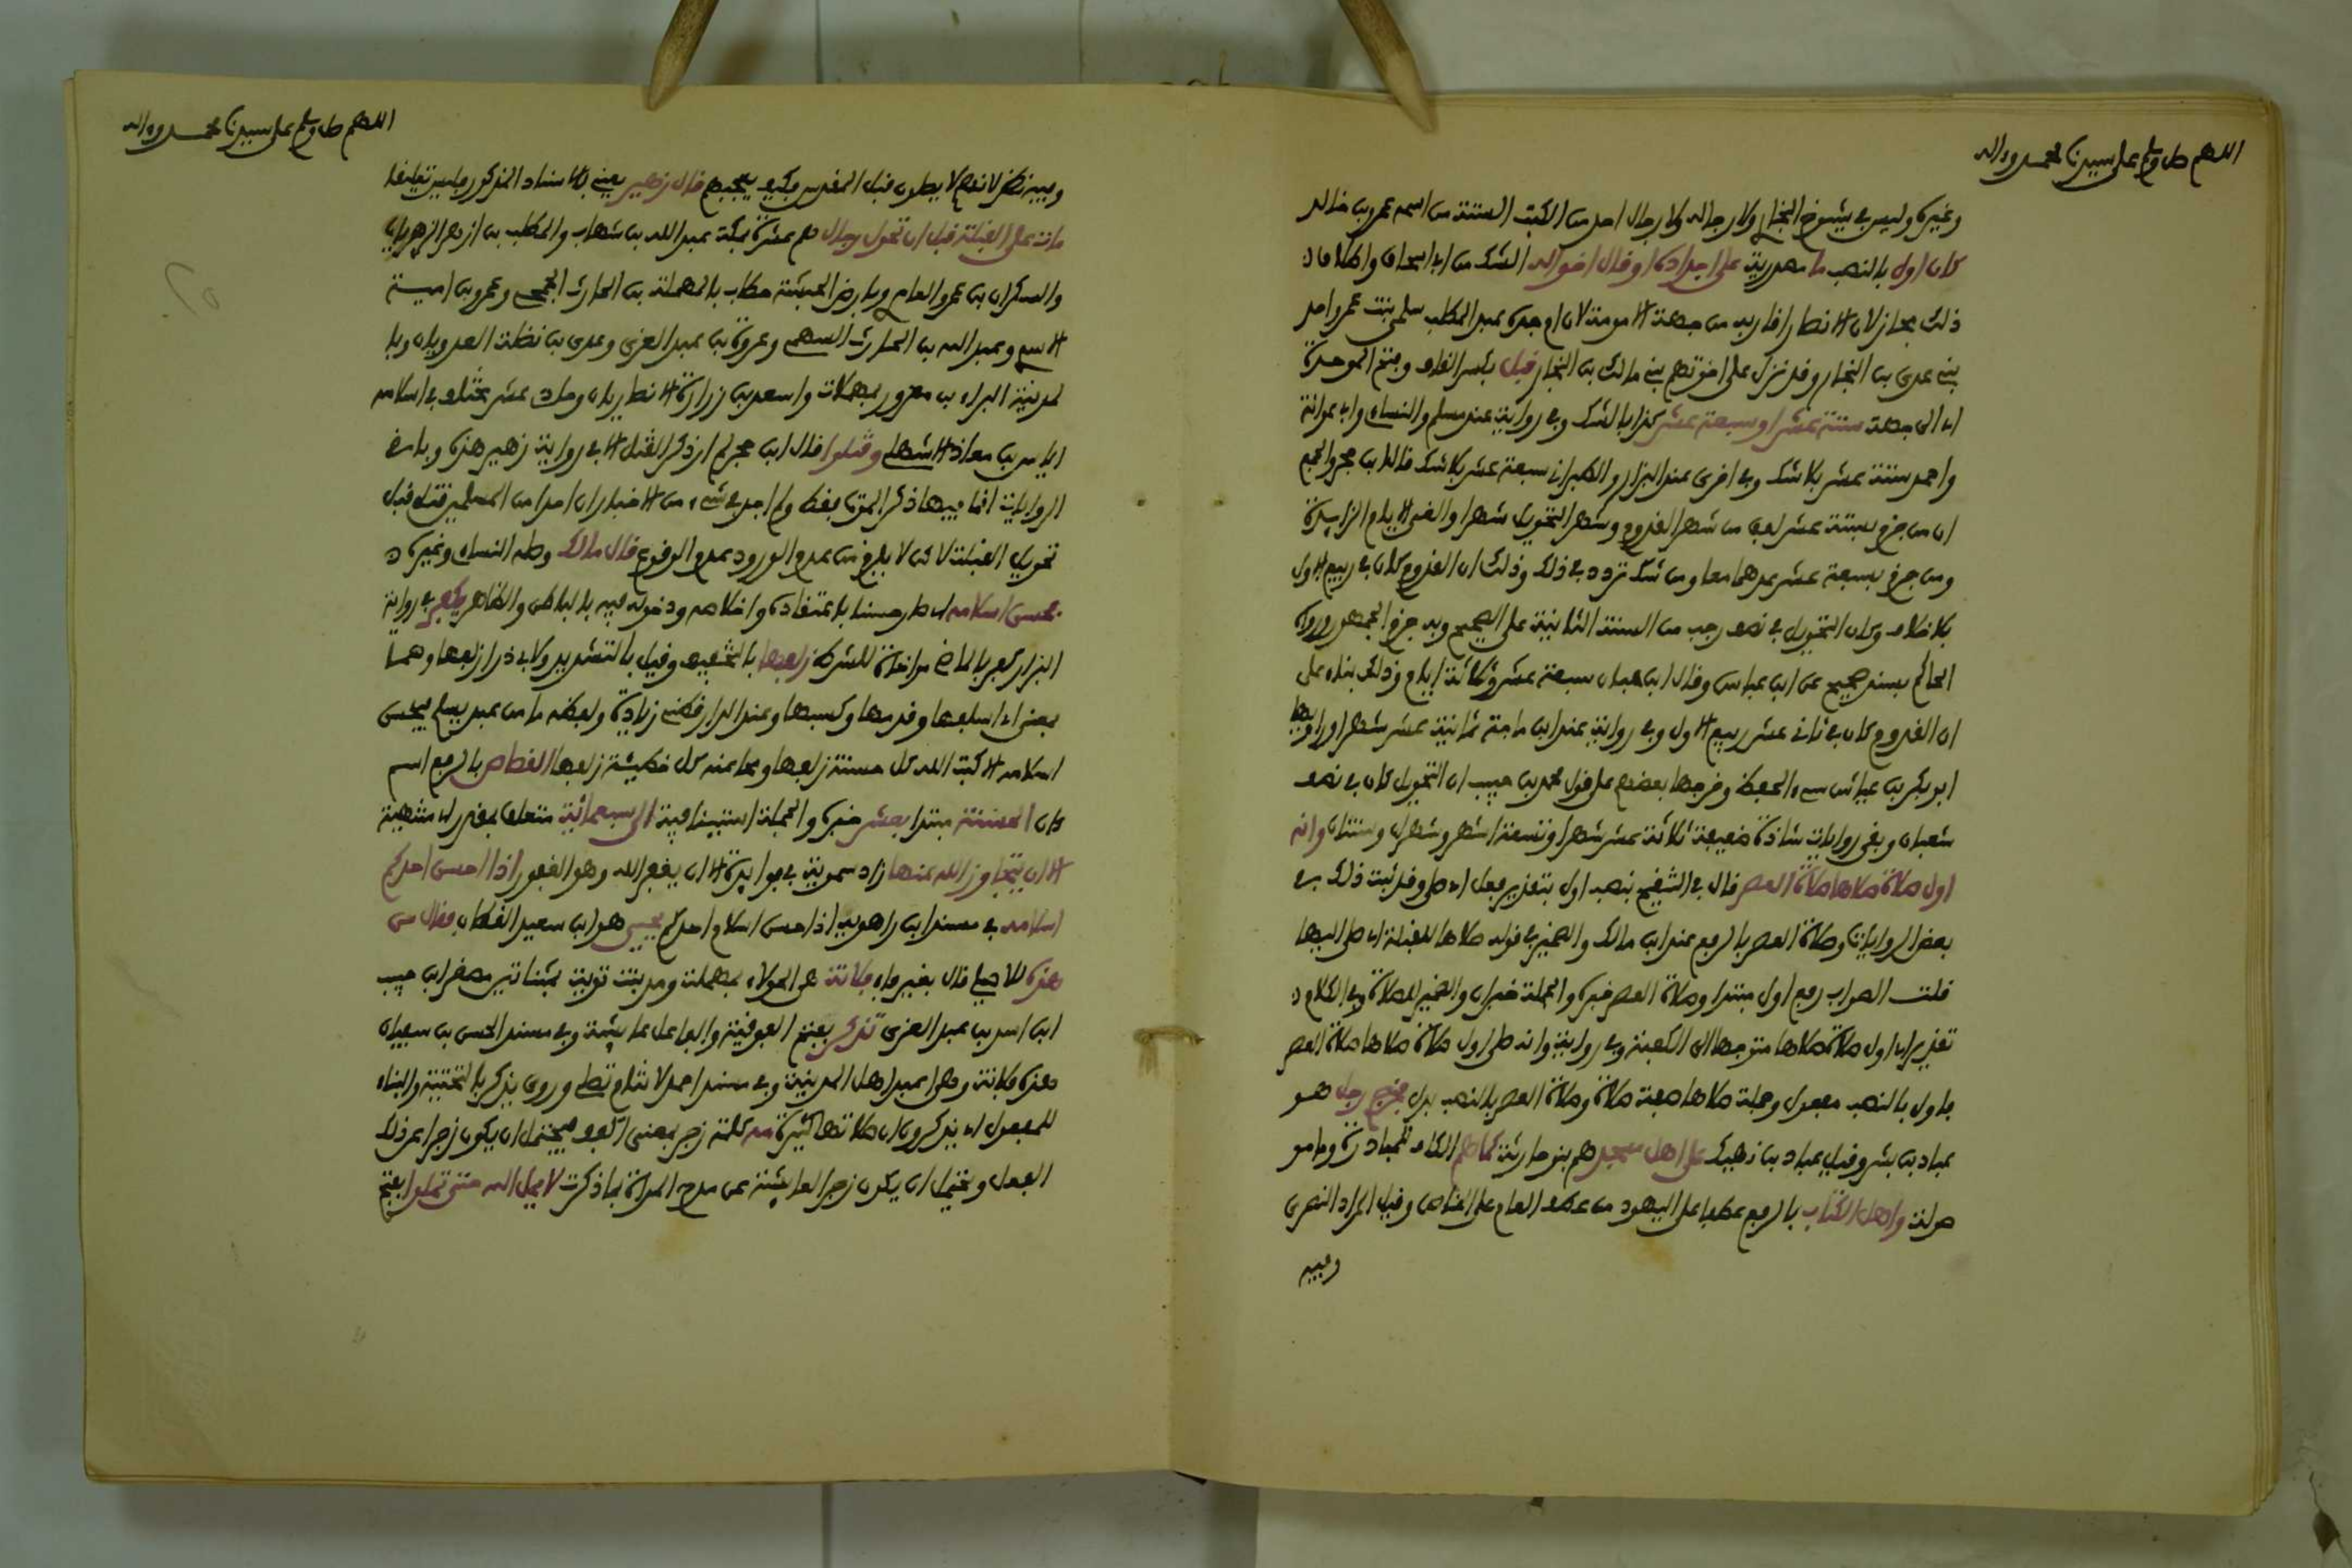 اللهم صل وسلم على سيدنا محمد وءاله
وغيره وليس في شيوخ البخاري ولا رجاله ولا رجال احد من الكتب الستة من اسمه عمرو بن خالد
كان اول بالنصب ما مصدرية على اجداده او قال اخواله الشك من ابي اسحاق واطلاق
ذلك مجاز لان الانصار اقاربه من جهة الامومة لان ام جده عبد المطلب سلمى بنت عمرو احد
بني عدي بن النجار وقد نزل على اخوتهم بني مالك بن النجار قبل بكسر القاف وفتح الموحدة
اي الى جهة ستة عشر او سبعة عشر كذا بالشك وفي رواية عند مسلم والنساءي وابي عوانة
واحمد ستة عشر بلا شك وفي اخرى عند البزار والطبراني سبعة عشر بلا شك قال ابن حجر والجمع
ان من جزم بستة عشر لفق من شهر القدوم وشهر التحويل شهرا والغى الايام الزايدة
ومن جزم بسبعة عشر عدهما معا ومن شك تردد في ذلك وذلك ان القدوم كان في ربيع الاول
بلا خلاف وكان التحويل في نصف رجب من السنة الثانية على الصحيح وبه جزم الجمهور ورواه
الحاكم بسند صحيح عن ابن عباس وقال ابن حبان سبعة عشر وثلاثة ايام وذلك بناء على
ان القدوم كان في ثاني عشر ربيع الاول وفي رواية عند ابن ماجة ثمانية عشر شهرا وراويها
ابو بكر بن عياش سيء الحفظ وخرجها بعضهم على قول محمد بن حبيب ان التحويل كان في نصف
شعبان وبقي روايات شاذة ضعيفة ثلاثة عشر شهرا وتسعة اشهر وشهران وسنتان وانه
اول صلاة صلاها صلاة العصر قال في التنقيح بنصب اول بتقدير فعل اي صلى وقد ثبت ذلك في
بعض الروايات وصلاة العصر بالرفع عند ابن مالك والضمير في قوله صلاها للقبلة اي صلى اليها
قلت الصواب رفع اول مبتدا وصلاة العصر خبره والجملة خبر ان والضمير للصلاة وفي الكلام
تقدير اي اول صلاة صلاها متوجها الى الكعبة وفي رواية وانه صلى اول صلاة صلاها صلاة العصر
فاول بالنصب مفعول وجملة صلاها صفة صلاة وصلاة العصر بالنصب بدل فخرج رجل هو
عباد بن بشر وقيل عباد بن نهيك على اهل مسجد هم بنو حارثة كما هم الكاف للمبادرة وما مو
صولة واهل الكتاب بالرفع عطفا على اليهود من عطف العام على الخاص وقيل المراد النصرى
وفيه
اللهم صل وسلم على سيدنا محمد وءاله
وفيه نظر لانهم لا يصلون قبل المقدس فكيف يعجبهم قال زهير يعني بالاسناد المذكور وليس تعليقا
مات على القبلة قبل ان تحول رجال هم عشرة بمكة عبد الله بن شهاب والمطلب بن ازهر الزهريان
والسكران بن عمرو العامري وبارض الحبشة حطاب بالمهملة بن الحارث الجمحي وعمرو بن امية
الاسدي وعبد الله بن الحارث السهمي وعروة بن عبد العزى وعدي بن نضلة العدويان وبا
لمدينة البراء بن معرور بمهملات واسعد بن زرارة الانصاريان وحادي عشر مختلف في اسلامه
اياس بن معاذ الاشهلي وقتلوا قال ابن حجر لم ار ذكر القتل الا في رواية زهير هذه وباقي
الروايات انما فيها ذكر الموت فقط ولم اجد في شيء من الاخبار ان احدا من المسلمين قتل قبل
تحويل القبلة لاكن لا يلزم من عدم الورود عدم الوقوع قال مالك وصله النساءي وغيره
فحسن اسلامه اي صار حسنا باعتقاده واخلاصه ودخوله فيه بالباطن والظاهر يكفر في رواية
البزار كفر بالماضي مواخاة للشرط زلفها بالتخفيف وقيل بالتشديد ولابي ذر ازلفها وهما
بمعنى اي اسلفها وقدمها وكسبها وعند الدارقطني زيادة ولفظه ما من عبد يسلم فيحسن
اسلامه الا كتب الله كل حسنة زلفها ومحا عنه كل خطيئة زلفها القصاص بالرفع اسم
كان الحسنة مبتدا بعشر خبره والجملة استينافية الى سبعمائة متعلق بمقدر اي منتهية
الا ان يتجاوز الله عنها زاد سمويه في فوايده الا ان يغفر الله وهو الغفور اذا احسن احدكم
اسلامه في مسند ابن راهويه اذا حسن اسلام احدكم يحيى هو ابن سعيد القطان فقال من
هذه للاصيلي قال بغير فاء فلانة هي الحولاء بمهملة ومد بنت تويت بمثناتين مصغر ابن حبيب
ابن اسد بن عبد العزى تذكر بفتح الفوقية والفاعل عايشة وفي مسند الحسن بن سفيان
هذه فلانة وهي اعبد اهل المدينة وفي مسند احمد لا تنام تصلي وروي يذكر بالتحتية والبناء
للمفعول اي يذكرون ان صلاتها كثيرة مه كلمة زجر بمعنى اكفف فيحتمل ان يكون زجرا عن ذلك
الفعل ويحتمل ان يكون زجر العايشة عن مدح المراة بما ذكرت لا يمل الله حتى تملوا بفتح